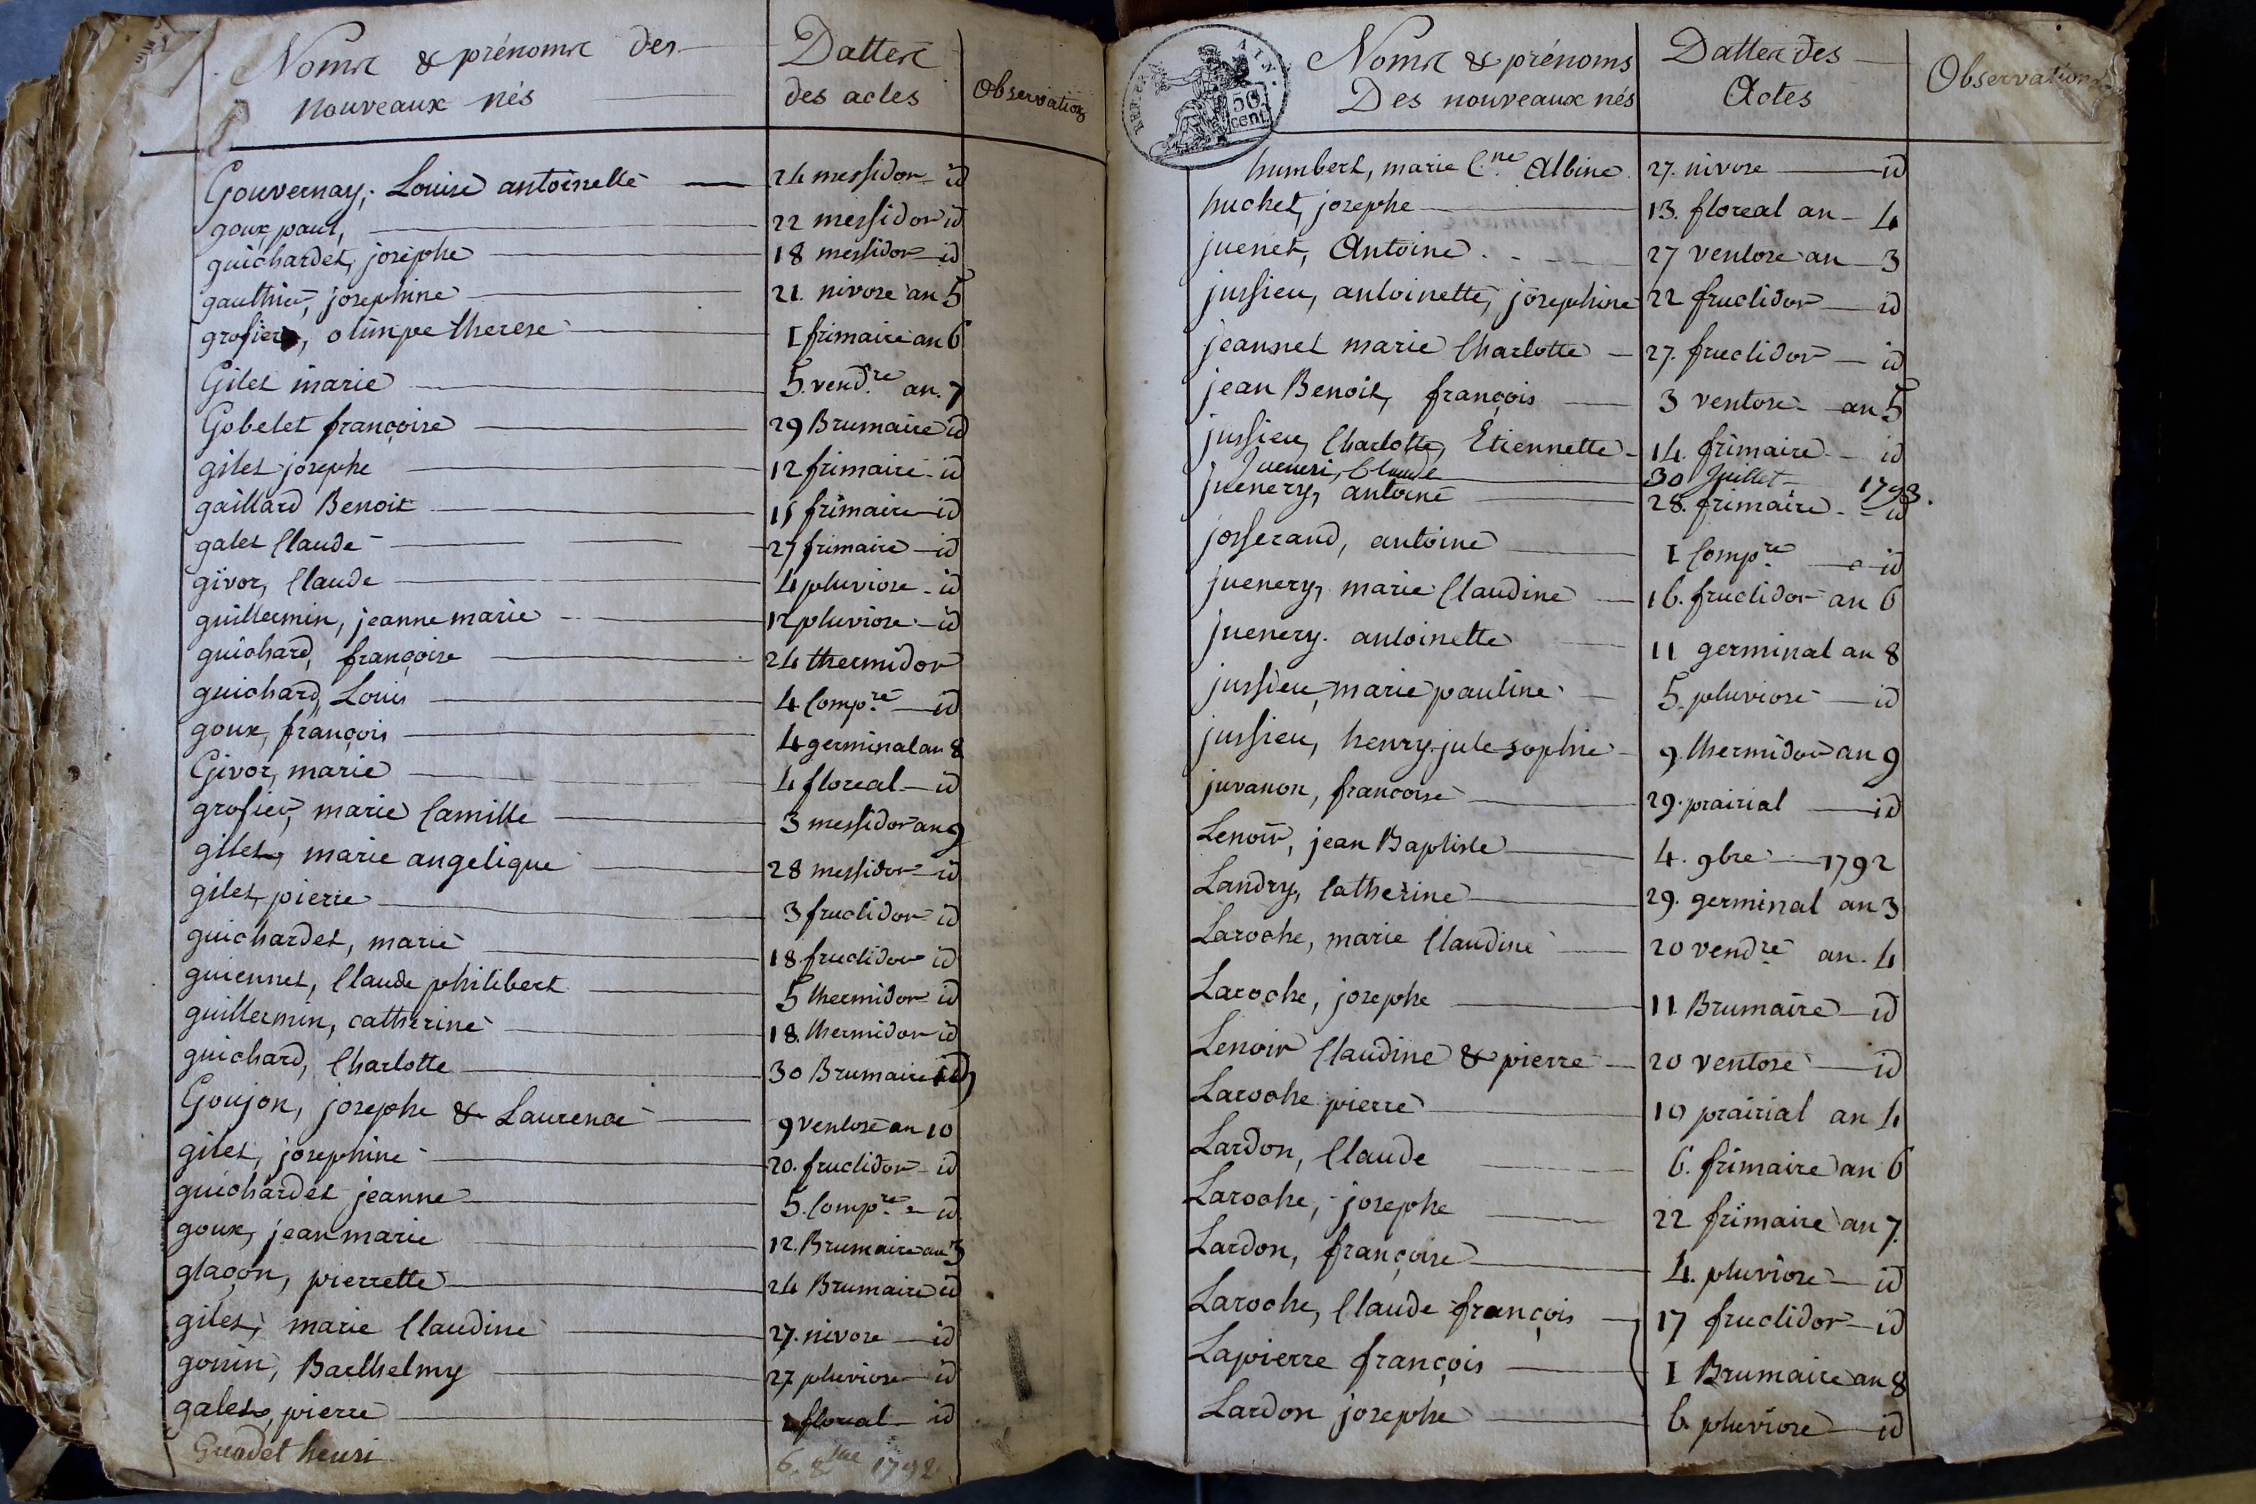 Noms & prénoms des
nouveaux nés
Dattes
des actes
Observation
Gouvernay, Louise antoinette 24 messidor id
goux, paul, 22 messidor id
guichardet, josephe 18 messidor id
gauthier, josephine 21. nivose an 5
grosier, olimpe therese 1 frimaire an 6
Gilet marie 5. vend.re an. 7
Gobelet françoise 29 Brumaire id
gilet josephe 12 frimaire id
gaillard Benoit 15 frimaire id
galet Claude 27 frimaire id
givor, Claude 4 pluviose id
guillermin, jeanne marie 12 pluviose id
guichard, françoise 24 thermidor
guichard, Louis 4 Comp.re id
goux, françois 4 germinal an 8
Givor, marie 4 floreal id
grosier, marie Camille 3 messidor an 9
gilet, marie angelique 28 messidor id
gilet, pierre 3 fructidor id
guichardet, marie 18. fructidor id
guiennet, Claude philibert 5 thermidor id
guillermin, catherine 18. thermidor id
guichard, Charlotte 30 Brumaire
Goujon, josephe & Laurence 9 ventose an 10
gilet, josephine 20. fructidor id
guichardet jeanne 5. Comp.re id
goux, jean marie 12. Brumaire an
glaçon, pierrette 24 Brumaire id
gilet, marie Claudine 27. nivose id
gonin, Barthelmy 27 pluviose id
galet, pierre floreal id
Guodet henri 6. 8bre 1792
REP. FRA.
50
cent.
Noms & prénoms
Des nouveaux nés
Dattes des
Actes
Observations
humbert, marie C.ne Albine 27. nivose id
huchet, josephe 13. floreal an 4
juenet, Antoine 27 ventose an 3
jussieu, antoinette, josephine 22 fructidor id
jeannet marie Charlotte 27. fructidor id
jean Benoit, françois 3 ventose an 5
jussieu, Charlotte, Etiennette 14. frimaire id
Jueneri, Claude 30 Juillet 1793.
juenery, antoine 28. frimaire id
josserand, antoine 1 Comp.re id
juenery, marie Claudine 16. fructidor an 6
juenery. antoinette 11 germinal an 8
jussieu, marie pauline 5. pluviose id
jussieu, henry jule sophie 9. thermidor an 9
juvanon, francoise 29. prairial id
Lenoir, jean Baptiste 4. 9bre 1792
Landry, Catherine 29. germinal an 3
Laroche, marie Claudine 20 vendre an. 4
Laroche, josephe 11. Brumaire id
Lenoir Claudine & pierre 20 ventose id
Laroche pierre 10 prairial an 4
Lardon, Claude 6. frimaire an 6
Laroche, josephe 22 frimaire an 7.
Lardon, françoise 4. pluviose id
Laroche, Claude françois 17 fructidor id
Lapierre françois 1 Brumaire an 8
Lardon josephe 6. pluviose id